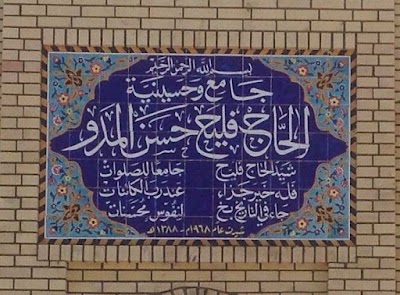 بسم الله الرحمن الرحيم
جامع وحسينية
الحاج فليح حسن المدو
شيد الحاج فليح جامعاً للصلوات
فله خير جزاء عند رب الكائنات
جاء في التاريخ بخ لنفوس محسنات
عام ١٩٦٨م - ١٣٨٨هـ